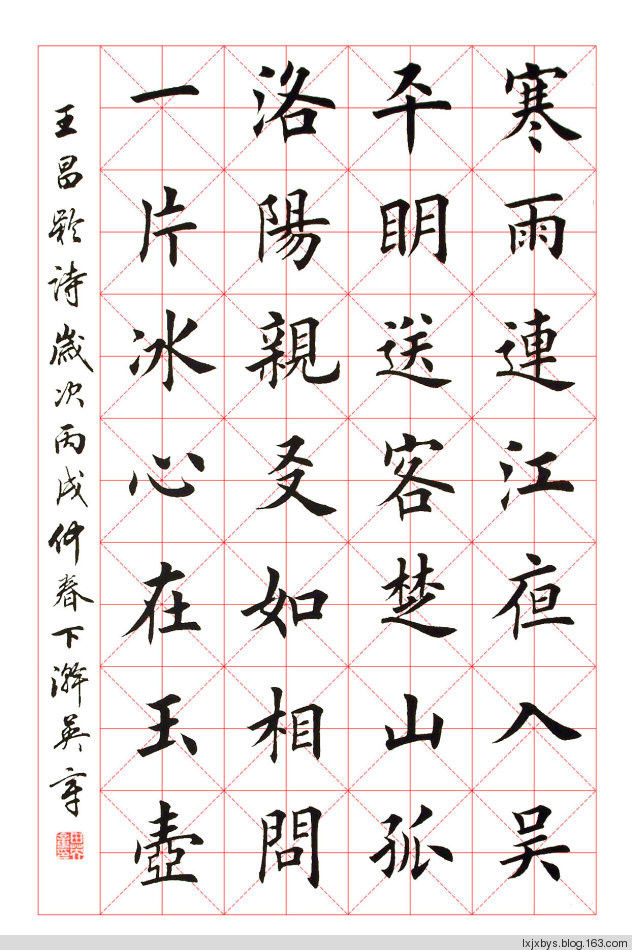 寒雨連江夜入吴
平明送客楚山孤
洛陽親友如相問
一片冰心在玉壺
王昌齡詩歲次丙戌仲春下澣英章
lxjxbys.blog.163.com